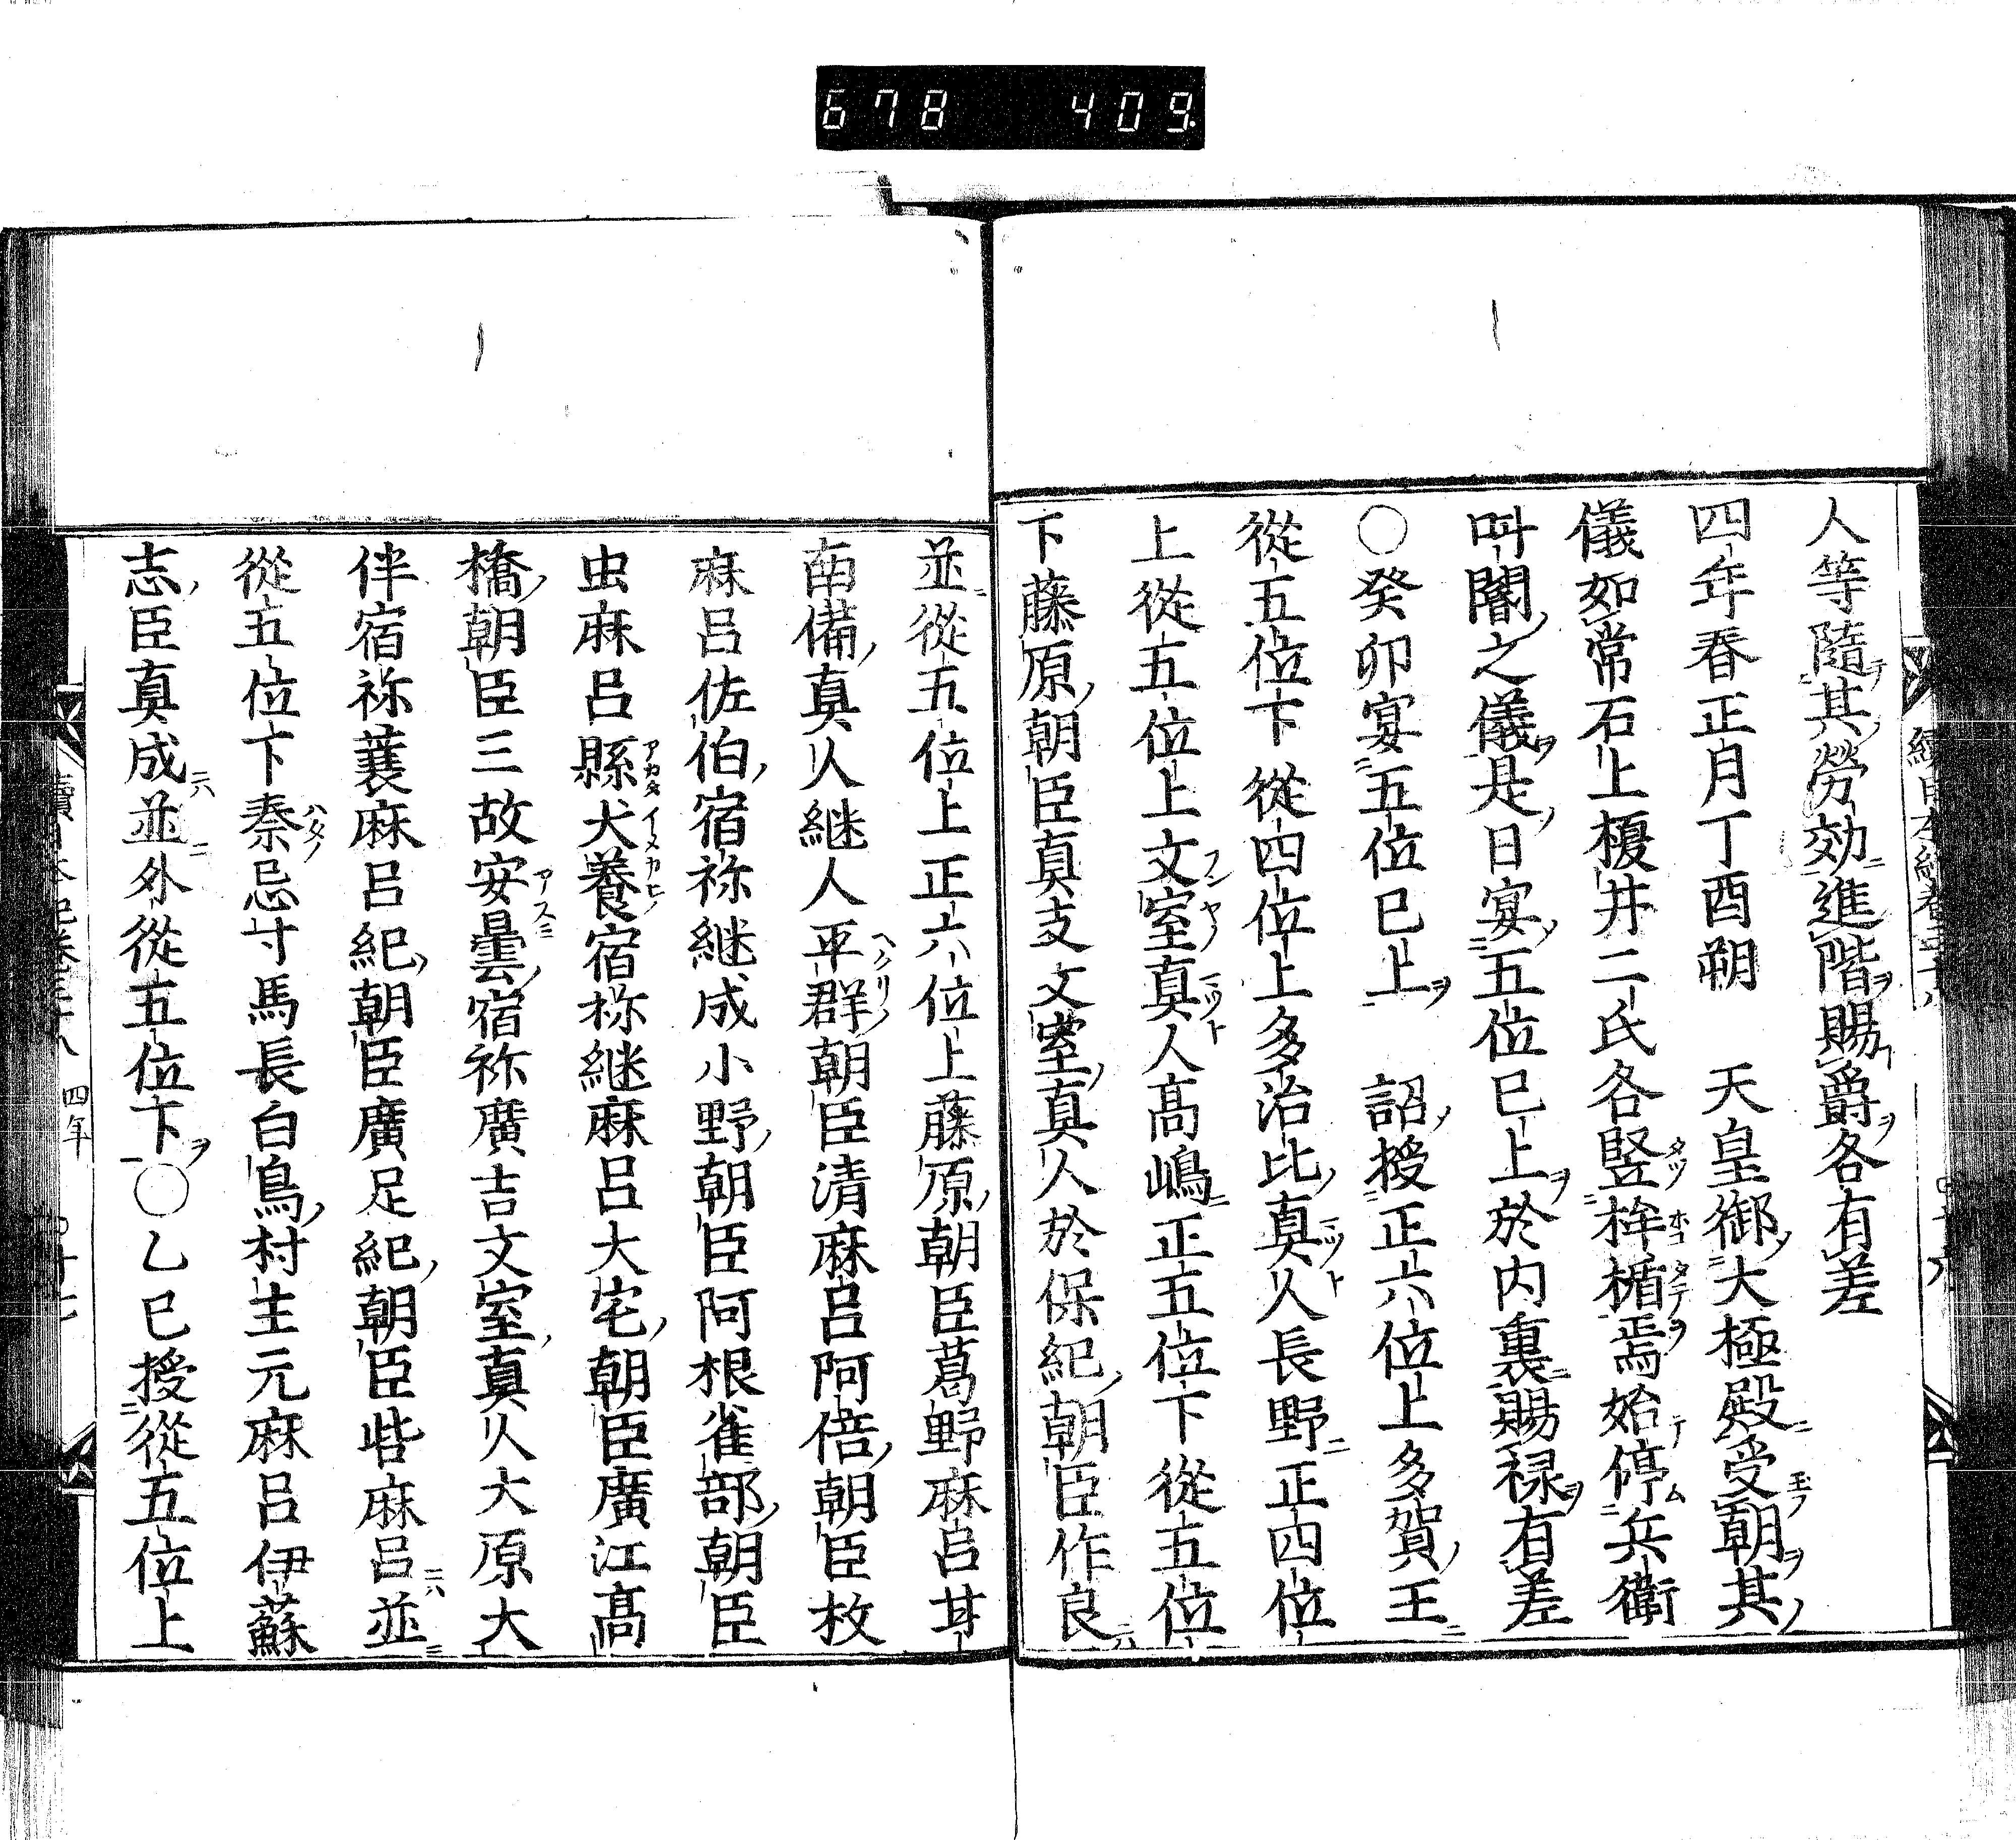 678 409
人等隨其勞効進階賜爵各有差
四年春正月丁酉朔 天皇御大極殿受朝其
儀如常石上榎井二氏各竪桙楯焉始停兵衛
叫閽之儀是日宴五位已上於内裏賜禄有差
○癸卯宴五位已上 詔授正六位上多賀王
從五位下從四位上多治比真人長野正四位
上從五位上文室真人高嶋正五位下從五位
下藤原朝臣真支文室真人於保紀朝臣作良
並從五位上正六位上藤原朝臣葛野麻呂甘
南備真人継人平群朝臣清麻呂阿倍朝臣枚
麻呂佐伯宿祢継成小野朝臣阿根雀部朝臣
虫麻呂縣犬養宿祢継麻呂大宅朝臣廣江髙
橋朝臣三故安曇宿祢廣吉文室真人大原大
伴宿祢蓑麻呂紀朝臣廣足紀朝臣呰麻呂並
從五位下秦忌寸馬長白鳥村主元麻呂伊蘇
志臣真成並外從五位下○乙巳授從五位上
四年